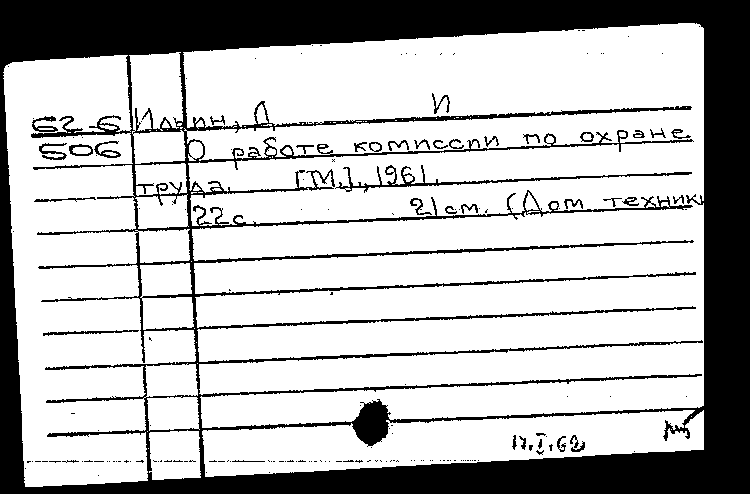 62-6 Ильин, Д. И
506 О работе комиссии по охране
труда. [М.], 1961.
22с. 21см. (Дом техники
17.I.62